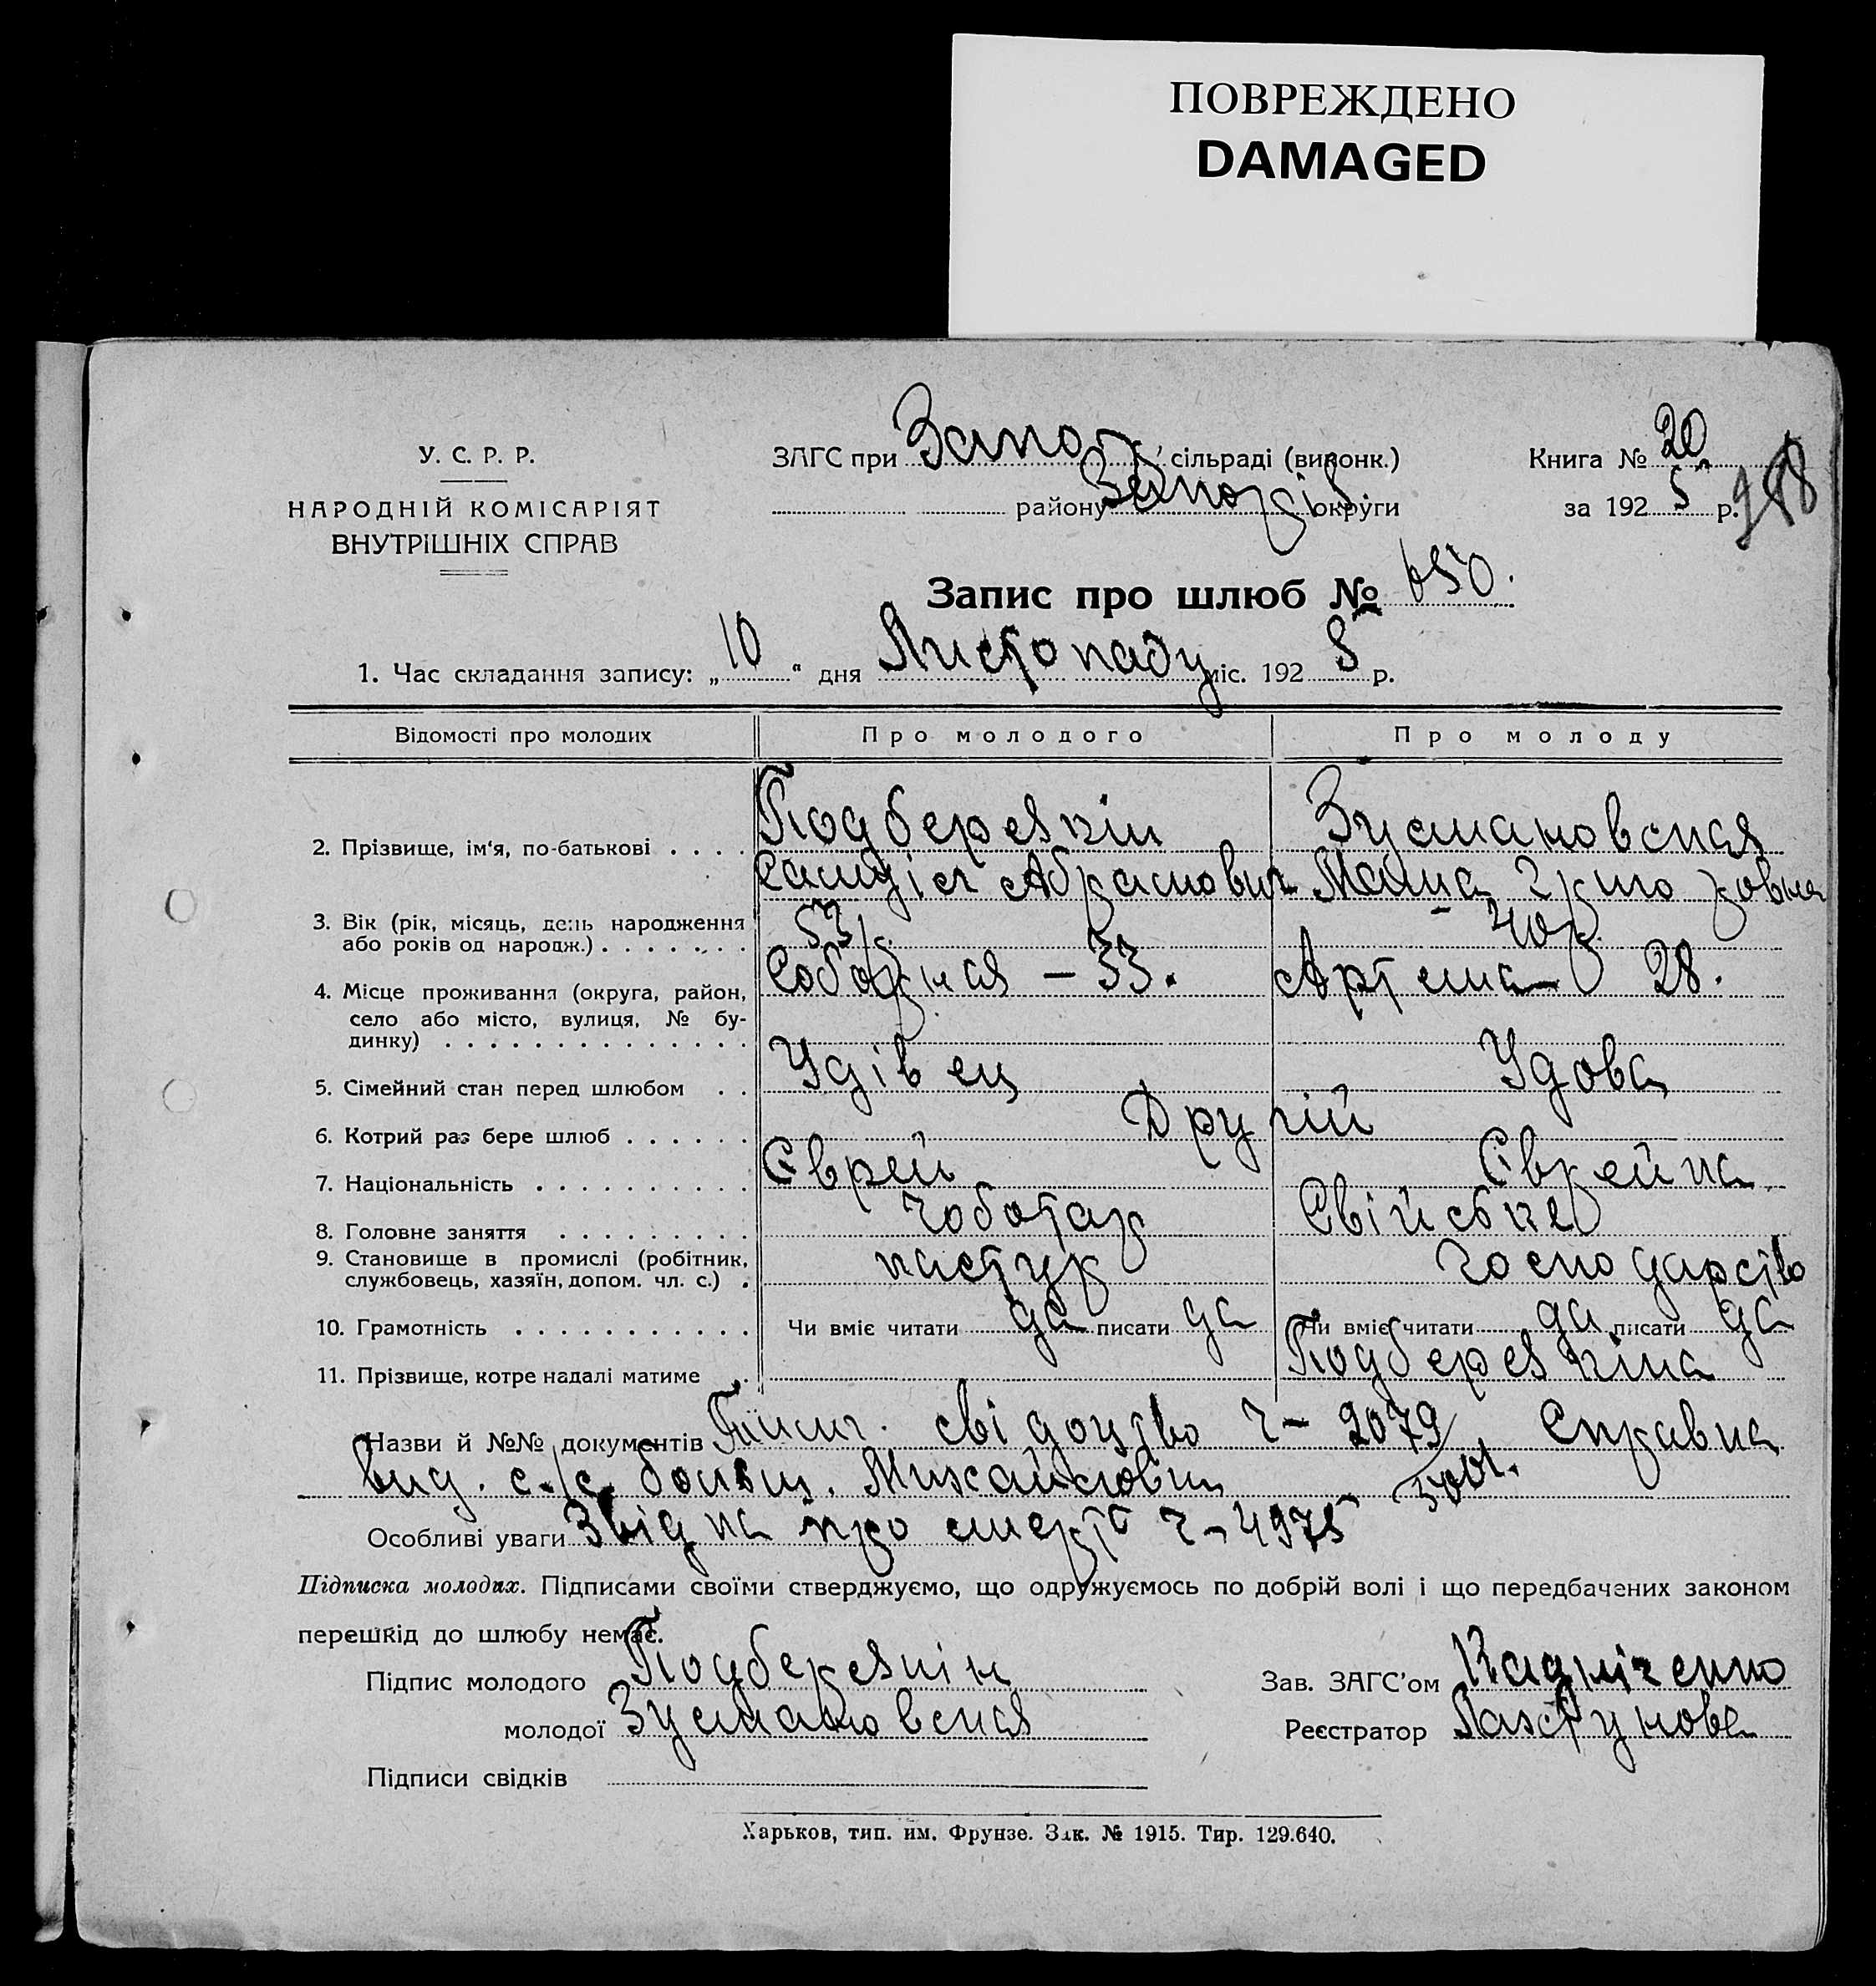 ПОВРЕЖДЕНО
DAMAGED
У. С. Р. Р.
НАРОДНІЙ КОМІСАРІЯТ
ВНУТРІШНІХ СПРАВ
ЗАГС при Запо сільраді (виконк.)
району Запоріз округи
Книга № 20
за 1925 р.
Запис про шлюб № 650.
1. Час складання запису: „10“ дня Листопаду міс. 1925 р.
Відомості про молодих Про молодого Про молоду
2. Прізвище, ім'я, по-батькові . . . . Подберезкін Зусмановская
Самуіл Абрамович Маша
3. Вік (рік, місяць, день народження
або років од народж.) . . . . . . . 53 р. 40 р.
4. Місце проживання (округа, район, Соборная – 33. Артема – 28.
село або місто, вулиця, № бу-
динку) . . . . . . . . . . . . . .
5. Сімейний стан перед шлюбом . . Удівец Удова
6. Котрий раз бере шлюб . . . . . . Другий
7. Національність . . . . . . . . . . Єврей Єврейка
8. Головне заняття . . . . . . . . . Чоботар Свійське
9. Становище в промислі (робітник,
службовець, хазяїн, допом. чл. с.) . кустар господарство
10. Грамотність . . . . . . . . . . . Чи вміє читати да писати да Чи вміє читати да писати да
11. Прізвище, котре надалі матиме . Подберезкіна
Назви й №№ документів свідоцтво ч– 2079 Справка
вид. с/с. больш. Михайловки
Особливі уваги Звідка про смерть ч–4975
Підписка молодих. Підписами своїми стверджуємо, що одружуємось по добрій волі і що передбачених законом
перешкід до шлюбу немає.
Підпис молодого Подберезкін Зав. ЗАГС'ом
молодої Зусмановская Реєстратор
Підписи свідків
Харьков, тип. им. Фрунзе. Зак. № 1915. Тир. 129.640.